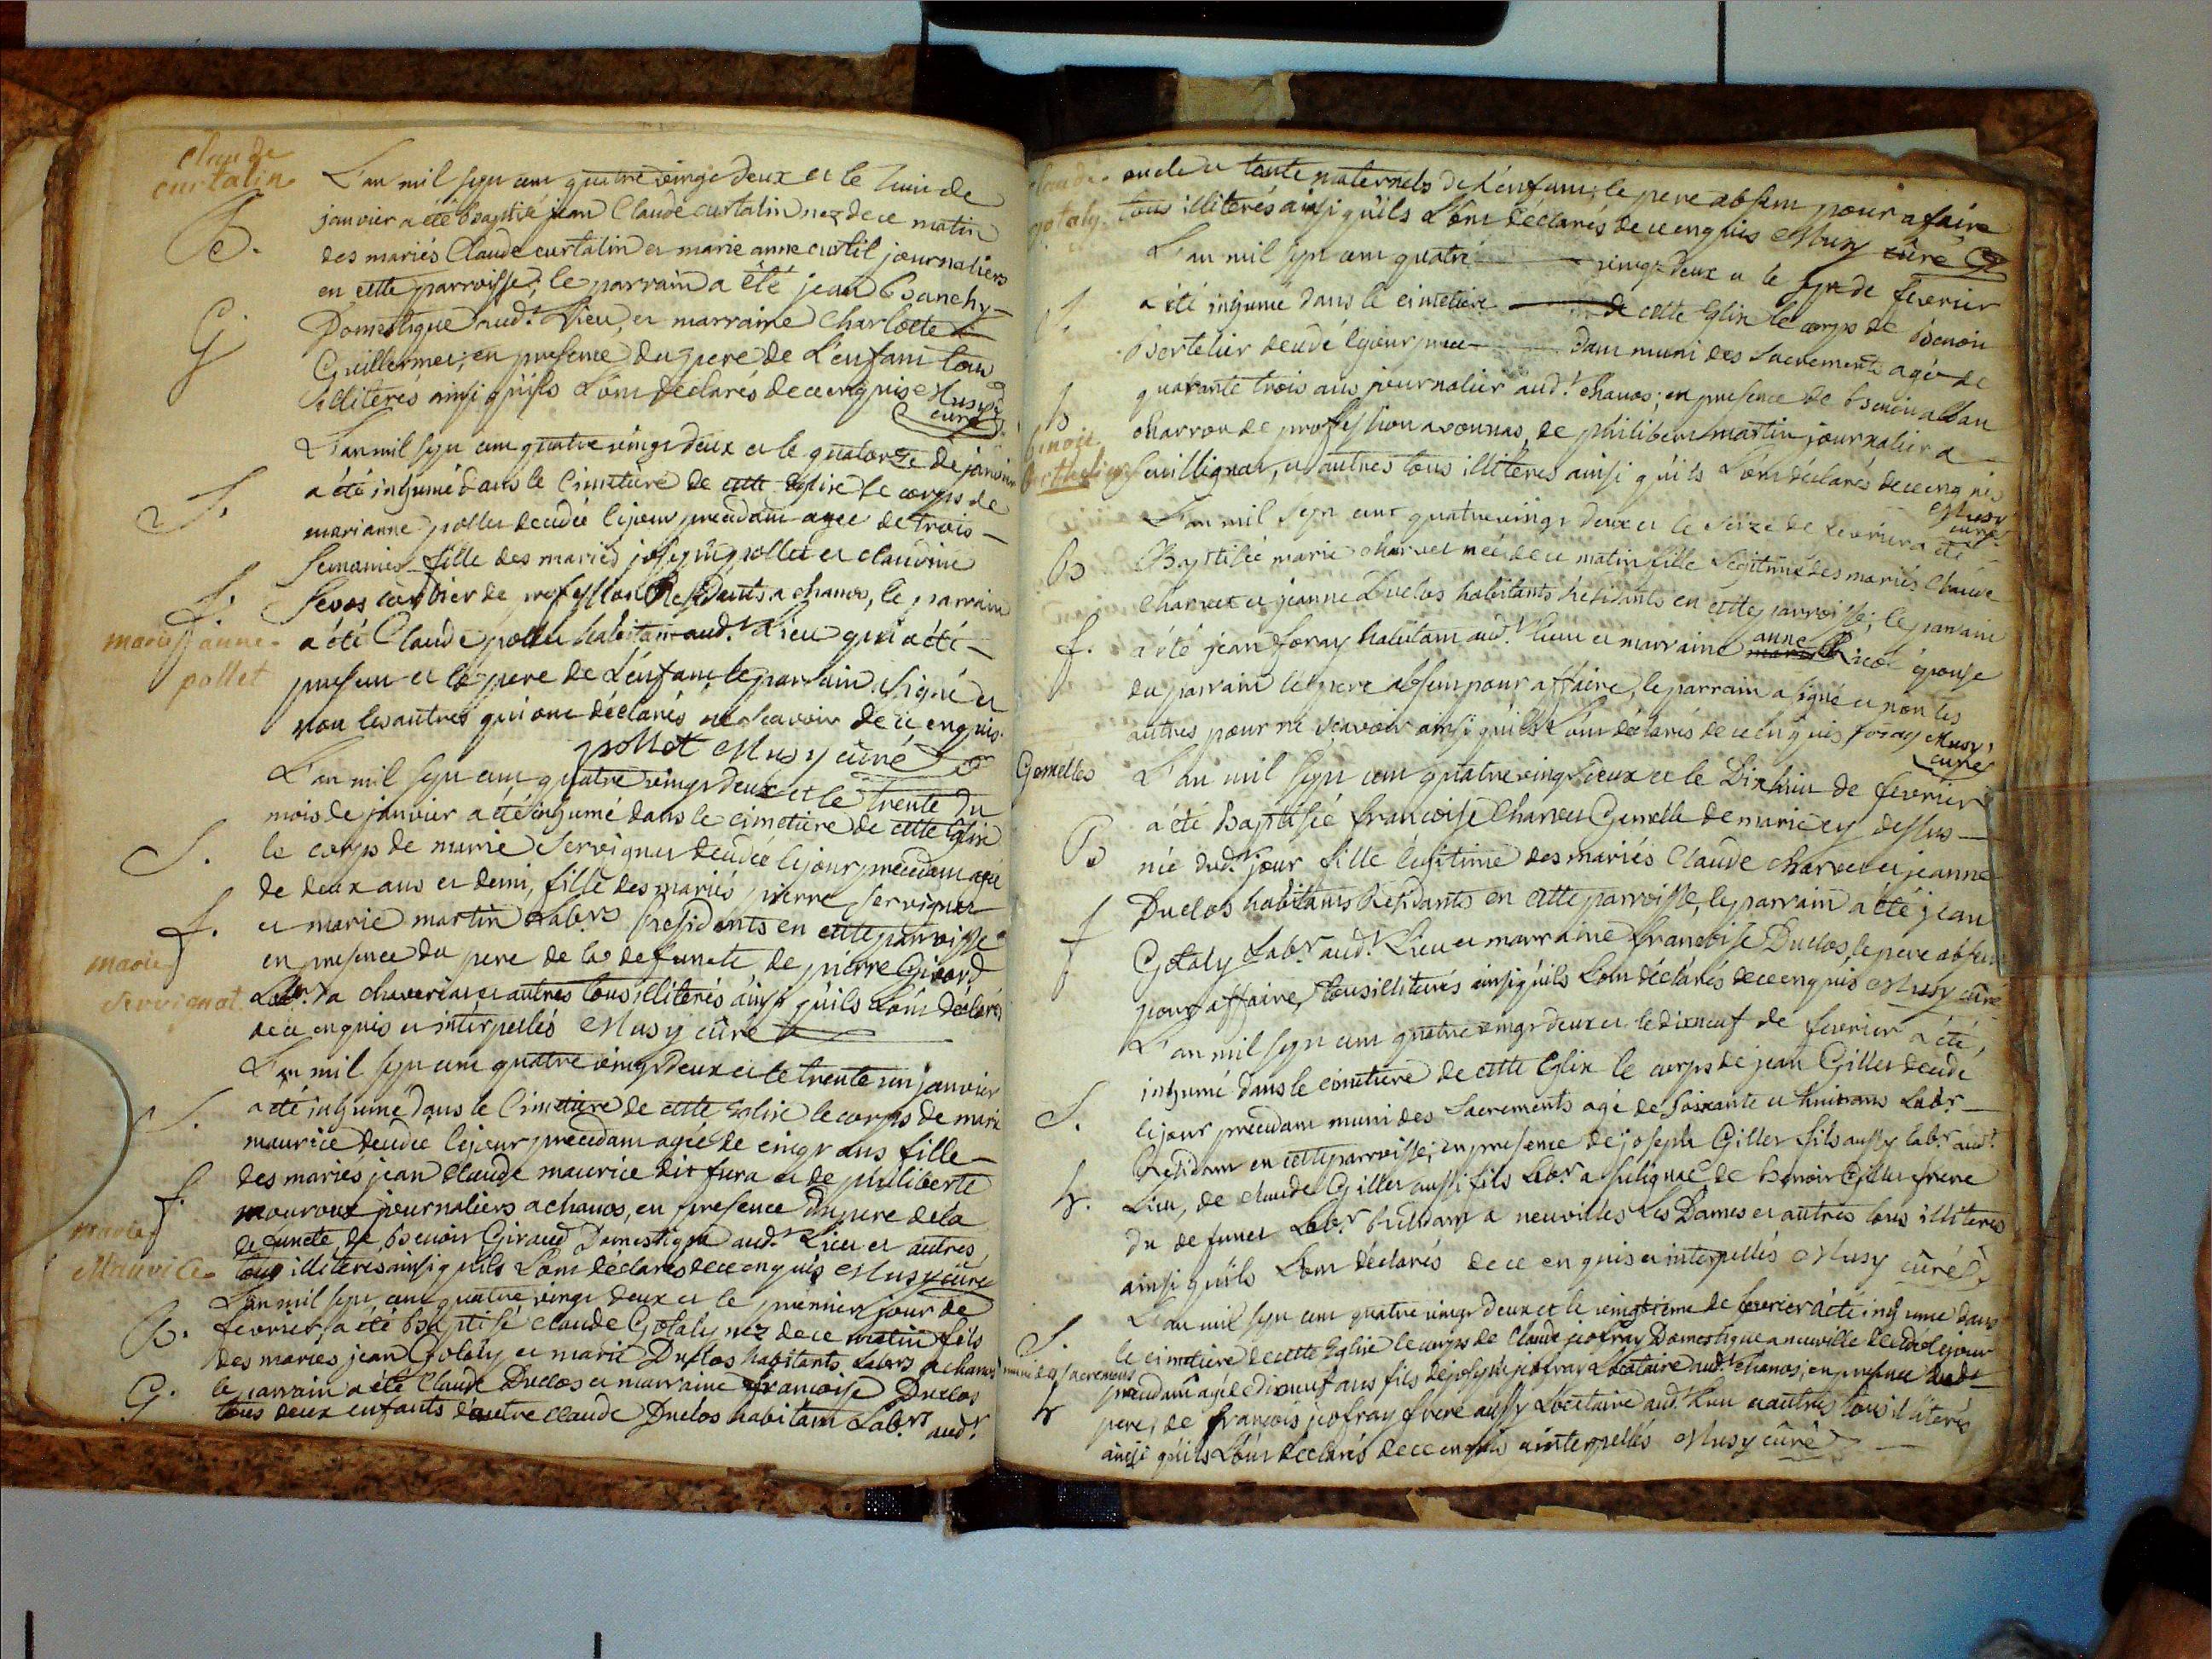 claude
curtalin
L'an mil sept cent quatre vingt deux et le huit de
janvier a été Baptisé jean Claude curtalin nez de ce matin
B.
des mariés Claude curtalin et marie anne curtil journaliers
en cette parroisse; le parrain a été jean
G
Domestique aud.t Lieu, et marraine Charlotte
Guillermet; en presence du pere de L'enfant tous
illiterés ainsi qu'ils L'ont declarés de ce enquis Musy
curé
L'an mil sept cent quatre vingt deux et le quatorze de janvier
a été inhumé dans le Cimetiere de cette Eglise le corps de
S.
marianne pollet decedée le jour precedant agee de trois
Semaines fille des mariés joseph pollet et claudine
de profession Residents a chanos, le parrain
f.
marie anne
a été Claude pollet habitant aud.t Lieu qui a été
pollet
present et le pere de L'enfant le parrain a signé et
non les autres qui ont déclarés ne scavoir de ce enquis.
pollet Musy curé
L'an mil sept cent quatre vingt deux et le trente du
mois de janvier a été inhumé dans le cimetiere de cette Eglise
S.
le corps de marie Servignat decedée le jour precedant agée
de deux ans et demi, fille des mariés pierre Servignat
f.
et marie martin Lab.rs Residents en cette parroisse
marie
en presence du pere de la defuncte, de pierre Girard
Servignat
Lab.r a chaveriat et autres tous illiterés ainsi qu'ils L'ont declarés
de ce enquis et interpellés Musy curé
L'an mil sept cent quatre vingt deux et le trente un janvier
S.
a été inhumé dans le Cimetiere de cette Eglise le corps de marie
maurice decedée le jour precedant agée de vingt ans fille
des mariés jean Claude maurice dit fura et de philiberte
f.
mouroux journaliers a chanos, en presence du pere de la
marie
defuncte de Benoit Giraud Domestique aud.t Lieu et autres
Maurice
tous illiterés ainsi qu'ils L'ont déclarés de ce enquis Musy curé
L'an mil sept cent quatre vingt deux et le premier jour de
B.
fevrier, a été Baptisé claude Gotaly nez de ce matin fils
des mariés jean Gotaly et marie Duclos habitants Lab.rs a chanos
G.
le parrain a été Claude Duclos et marraine francoise Duclos
tous deux enfants d'autre claude Duclos habitant Lab.r aud.t
claude
gotaly
oncle et tante maternels de L'enfant; le pere absent pour afaire
tous illiterés ainsi qu'ils L'ont déclarés de ce enquis Musy curé
L'an mil sept cent quatre vingt deux et le sept de fevrier
S.
a été inhumé dans le cimetiere de cette Eglise le corps de Benoit
Bertelier decedé le jour precedant muni des Sacrements agé de
quarante trois ans journalier aud.t chanos; en presence de Benoit alban
h
charron de profession a vounas, de philibert martin journalier a
benoit
berthelier
Saillignat, et autres tous illiterés ainsi qu'ils L'ont déclarés de ce enquis
Musy
curé
L'an mil sept cent quatre vingt deux et le seize de fevrier a été
B
Baptisée marie charvet née de ce matin fille Legitime des mariés Claude
charvet et jeanne Duclos habitants Residants en cette parroisse; le parrain
f.
a été jean foray habitant aud.t Lieu et marraine anne épouse
du parrain le pere absent pour affaire, le parrain a signé et non les
autres pour ne scavoir ainsi qu'ils L'ont déclarés de ce enquis foray Musy
curé
Gemelles
L'an mil sept cent quatre vingt deux et le Dix huit de fevrier
B
a été Baptisée francoise Charvet Gemelle de marie cy dessus
née dud.t jour fille legitime des mariés Claude charvet et jeanne
f
Duclos habitants Residants en cette parroisse, le parrain a été jean
Gotaly Lab.r aud.t Lieu et marraine francoise Duclos, le pere absent
pour affaire, tous illiterés ainsi qu'ils L'ont déclarés de ce enquis Musy curé
L'an mil sept cent quatre vingt deux et le dix neuf de fevrier a été,
inhumé dans le cimetiere de cette Eglise le corps de jean Gillet decedé
S.
le jour precedant muni des Sacrements agé de soixante et huit ans Lab.r
Residant en cette parroisse; en presence de joseph Gillet fils aussy lab.r aud.t
h.
Lieu, de claude Gillet aussi fils Lab.r a sulignat de Benoit Gillet frere
du defunct Lab.r Residant a neuvilles Les Dames et autres tous illiterés
ainsi qu'ils L'ont déclarés de ce enquis et interpellés Musy curé
L'an mil sept cent quatre vingt deux et le vingtieme de fevrier a été inhumé dans
S.
le cimetiere de cette Eglise le corps de Claude jeofray Domestique a neuville decedé le jour
muni des sacrements
precedant agé de dix neuf ans fils de joseph jeofray Locataire aud.t chanos; en presence dud.t
h
pere, de françois jeofray frere aussy Locataire aud.t Lieu et autres tous illiterés
ainsi qu'ils L'ont déclarés de ce enquis et interpellés Musy curé